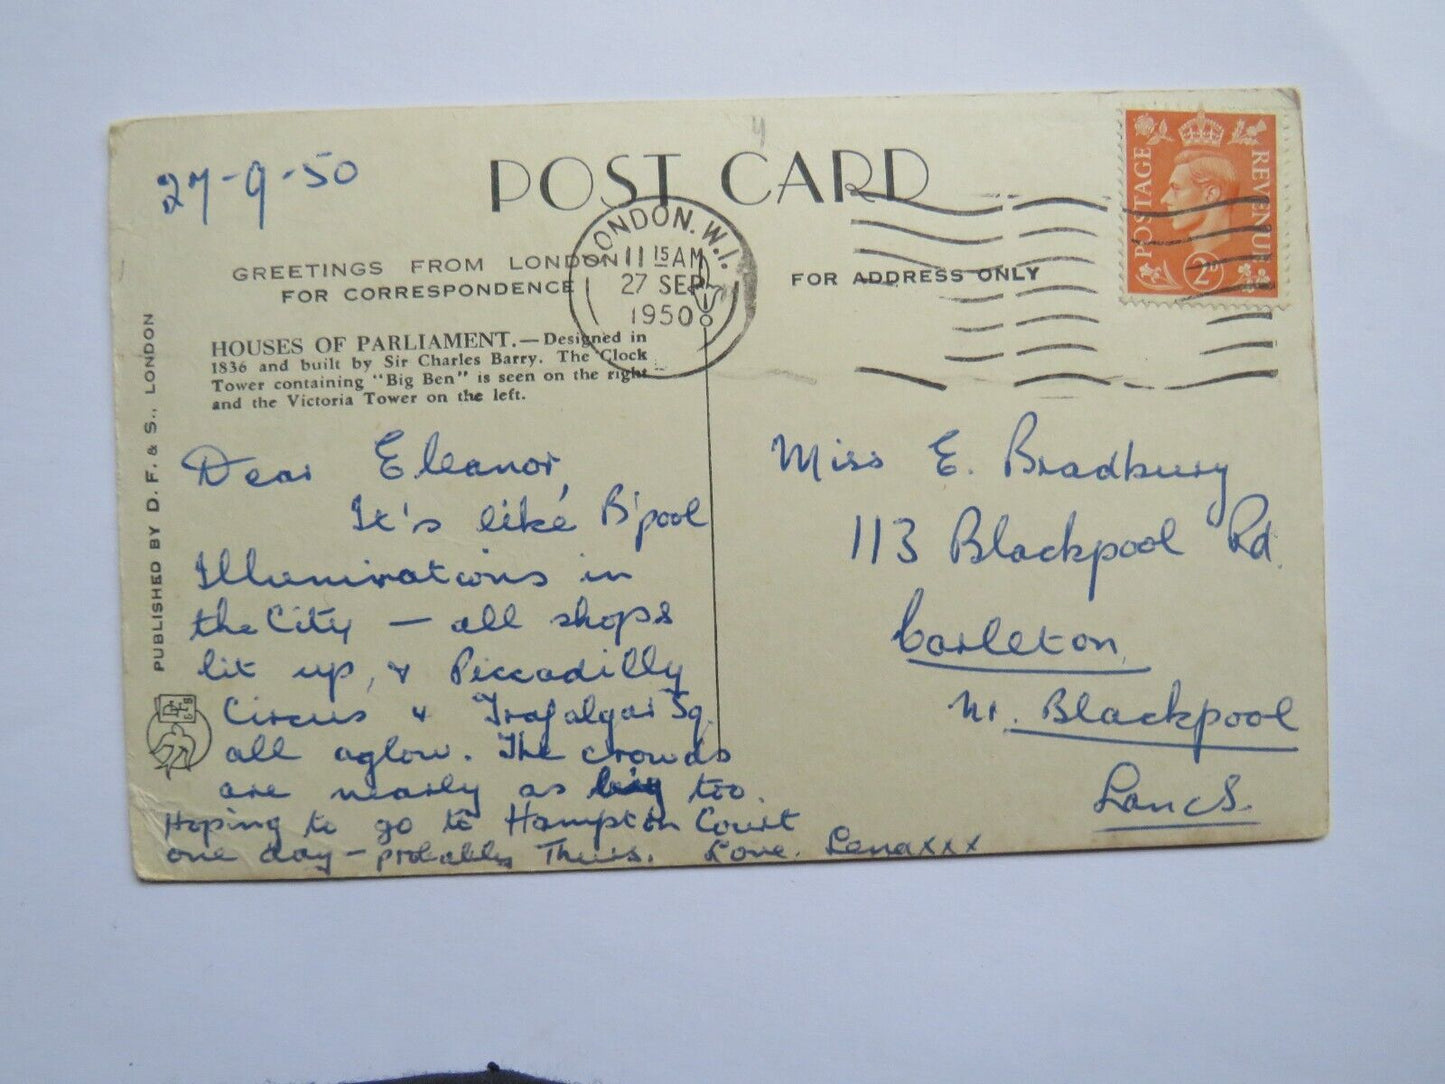 27-9-50
POST CARD
LONDON. W.1.
11 15 AM
27 SEP
1950
POSTAGE REVENUE
2D
GREETINGS FROM LONDON
FOR CORRESPONDENCE
FOR ADDRESS ONLY
HOUSES OF PARLIAMENT.—Designed in
1836 and built by Sir Charles Barry. The Clock
Tower containing "Big Ben" is seen on the right
and the Victoria Tower on the left.
PUBLISHED BY D. F. & S., LONDON
Dear Eleanor,
It's like B'pool
Illuminations in
the City — all shops
lit up, & Piccadilly
Circus & Trafalgar Sq.
all aglow. The crowds
are nearly as big too.
Hoping to go to Hampton Court
one day – probably Thurs. Love. Lena xxx
Miss E. Bradbury
113 Blackpool Rd.
Carleton,
Nr. Blackpool
Lancs.